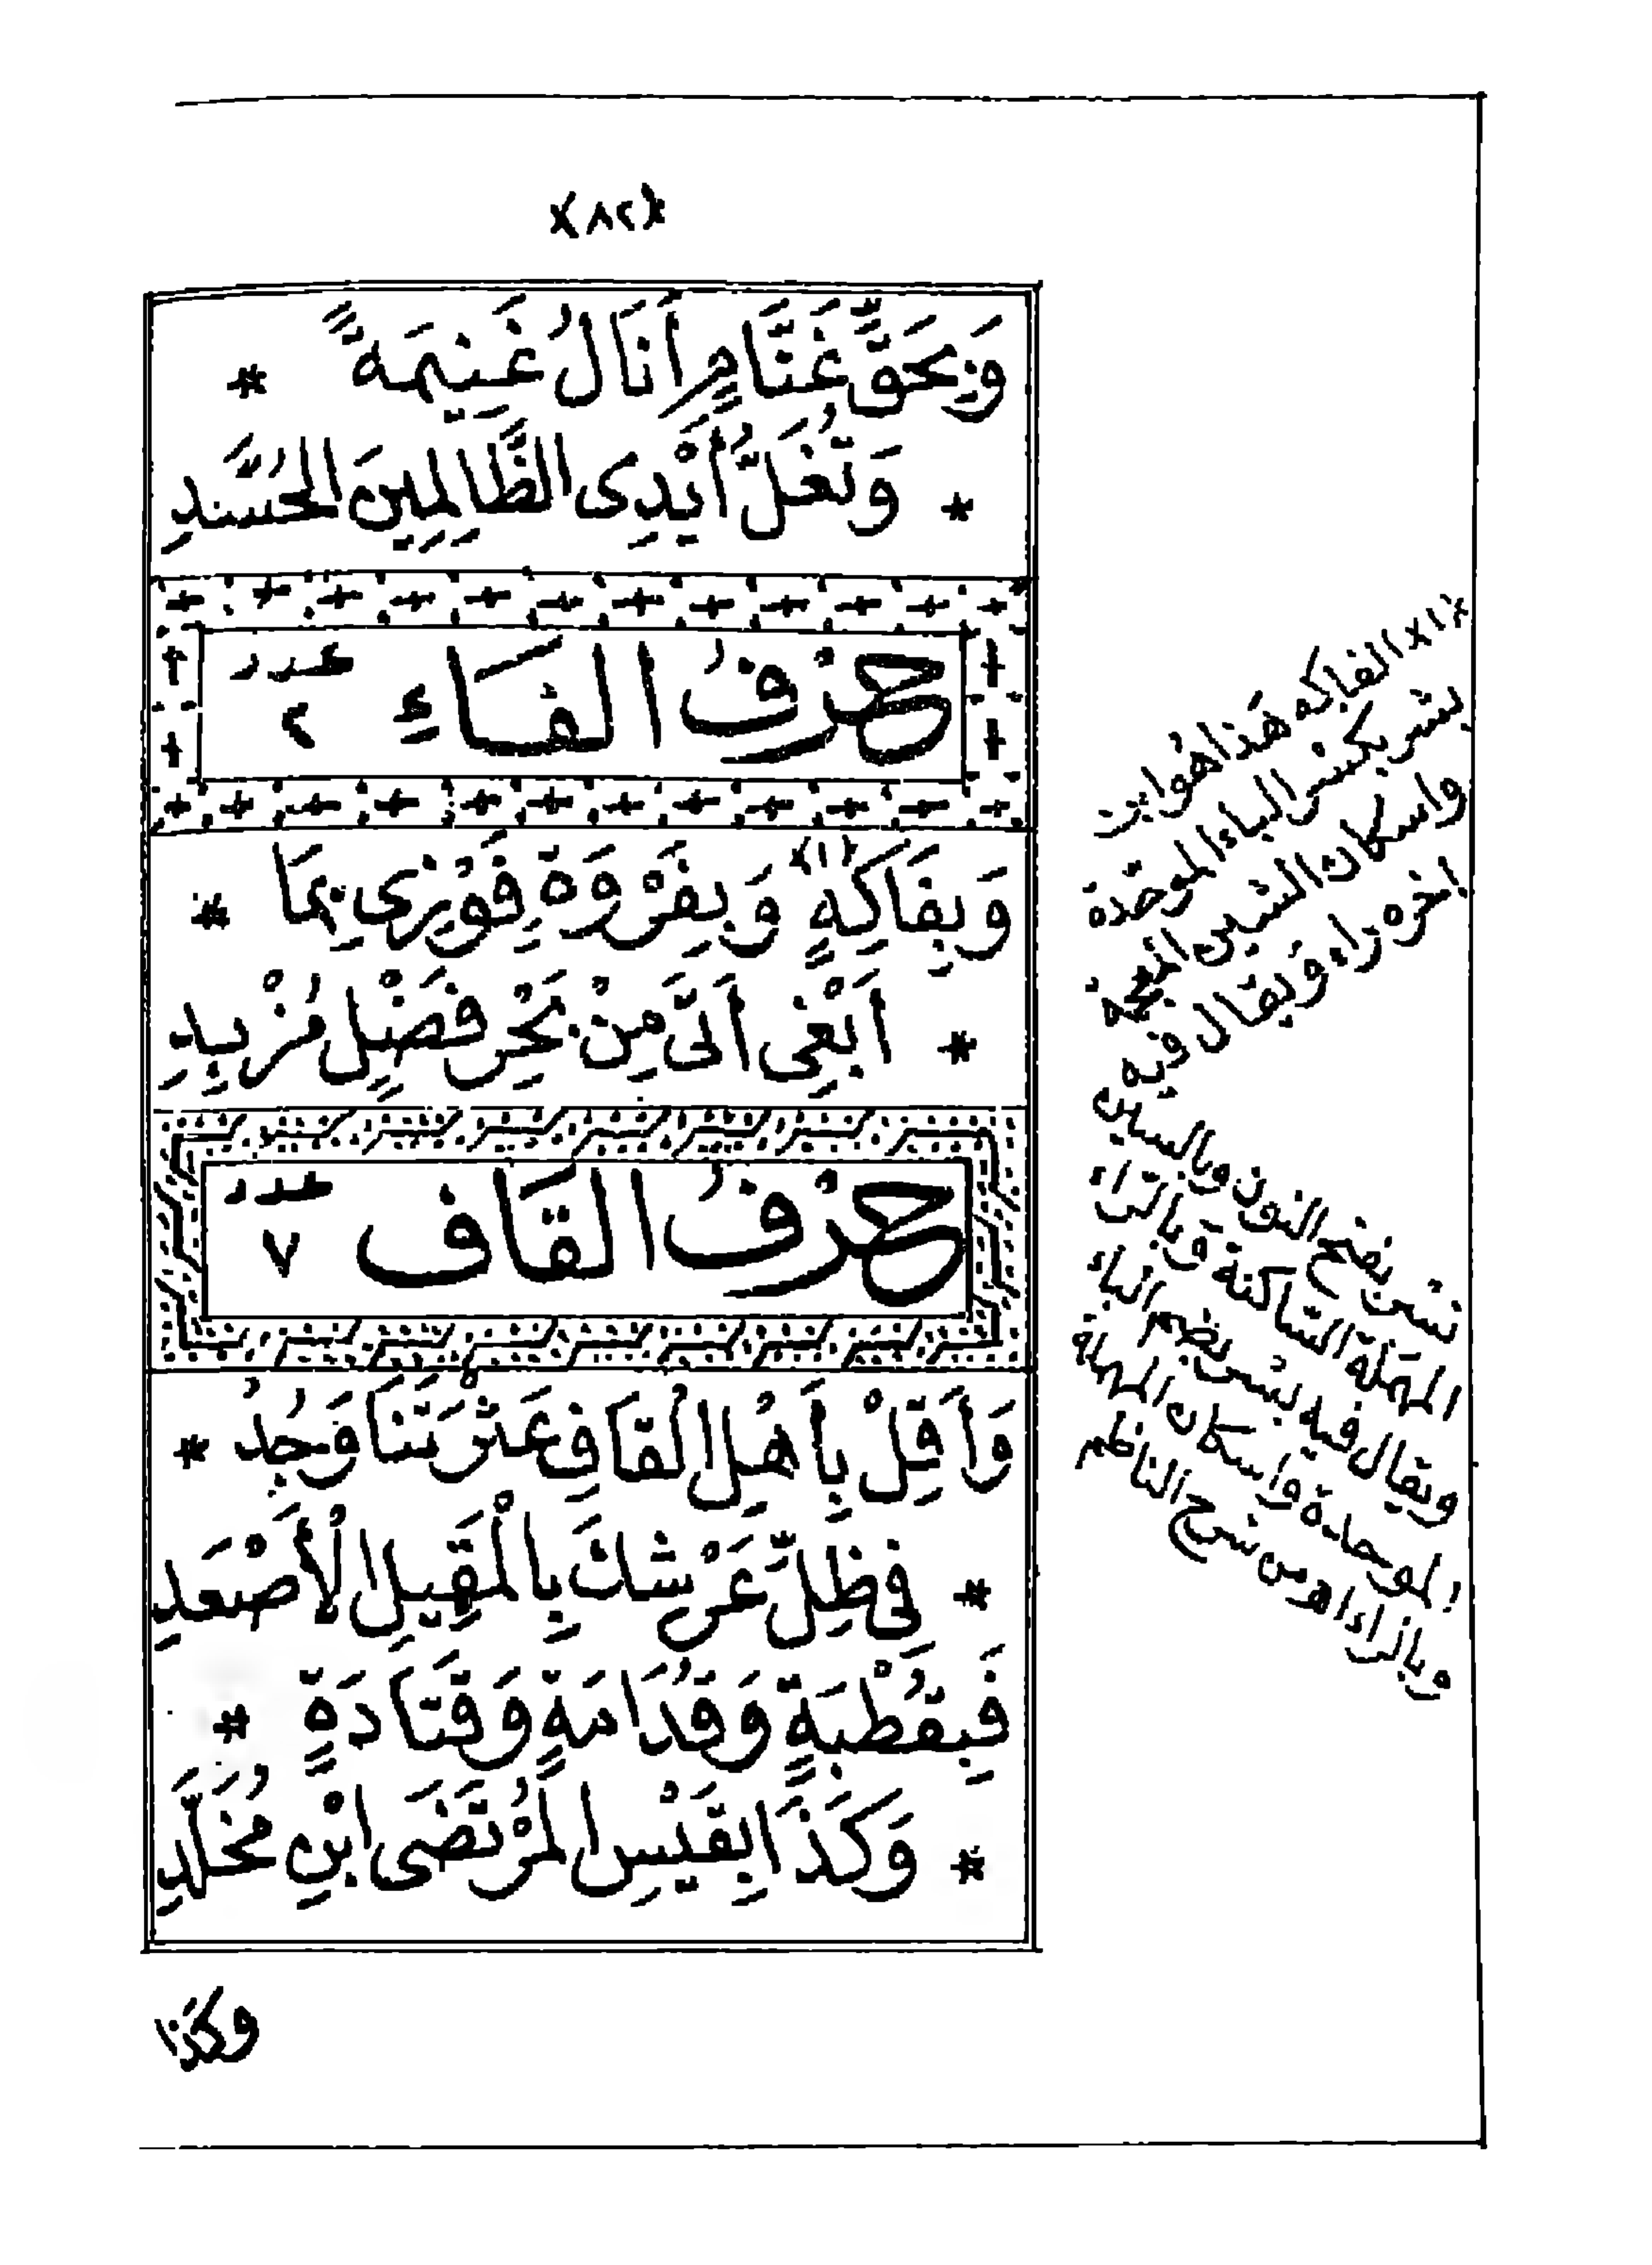 (٨٢)
وَبِحَقِّ غَنَّامٍ اَنَالُ غَنِيمَةً *
* وَتَغُلَّ أَيْدِى الظَّالِمِينَ الْحُسَّدِ
حَرْفُ الْفَاءِ عدد ٢
وَبِفَاكِهٍ (١) وَبِفَرْوَةٍ فَوْزِى بِمَا *
* اَبْغِى اَتَى مِنْ بَحْرِ فَضْلٍ مُزْبِدِ
حَرْفُ الْقَاف عدد ٧
وَأَقِلْ بِأَهْلِ الْقَافِ عَثْرَتَنَا وَجُدْ *
* فِى ظِلِّ عَرْشِكَ بِالْمَقِيلِ الْأَصْعَدِ
فَبِقُطْبَةٍ وَقُدَامَةٍ وَقَتَادَةٍ *
* وَكَذَا بِقَيْسِ الْمُرْتَضَى ابْنِ مُخَلَّدِ
(١) الفاكه هَذا هُو ابن
بشر بكسر الباء الموحّدة
واسكان الشين المعجمة
اخره راء وَيقال فيه
نَسْر بفتح النون وبالسين
المهملة السّاكنة وَبالرّاء
ويقال فيه بُسْر بضم الباء
الموحدة واسكان المهملة
وبالراء اهـ من شرح الناظم
وكذا